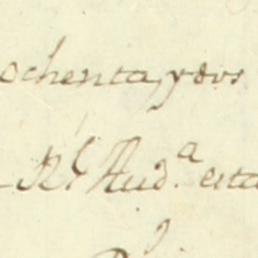 ochenta, y dos
Rl. Audª. esta